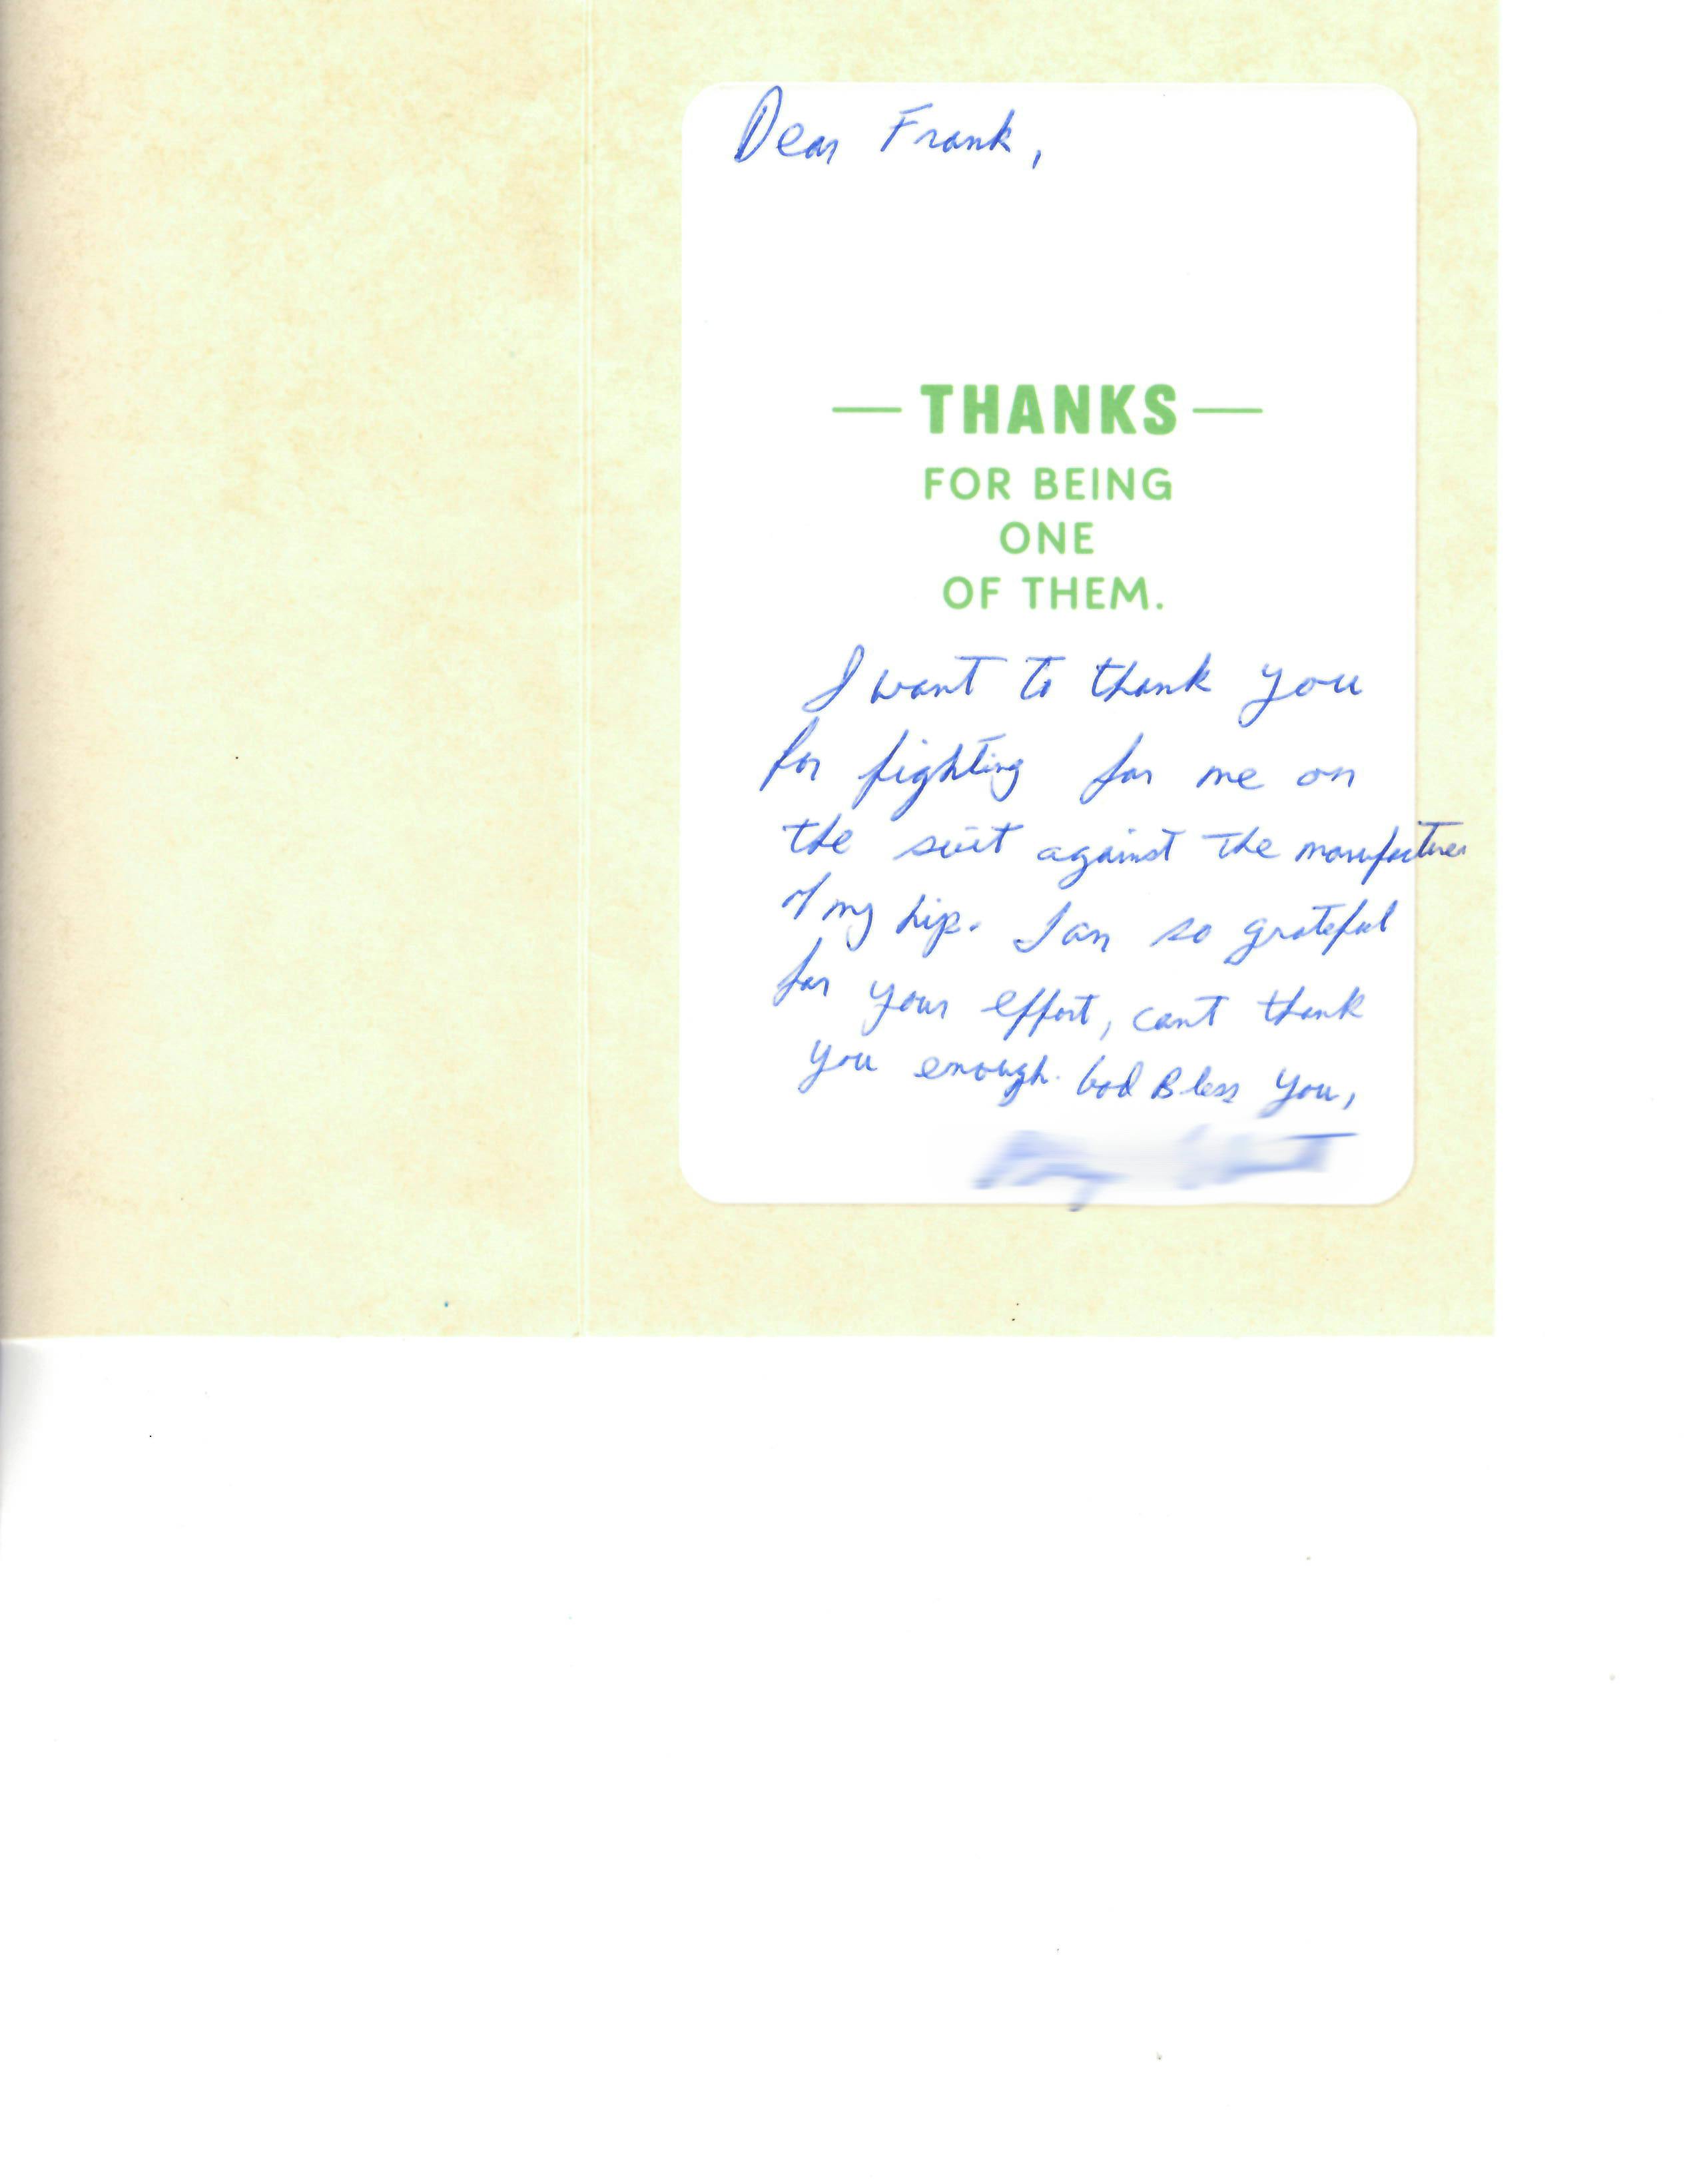 Dear Frank,
— THANKS —
FOR BEING
ONE
OF THEM.
I want to thank you
for fighting for me on
the suit against the manufacturer
of my hip. I am so grateful
for your effort, cant thank
you enough. God Bless you,